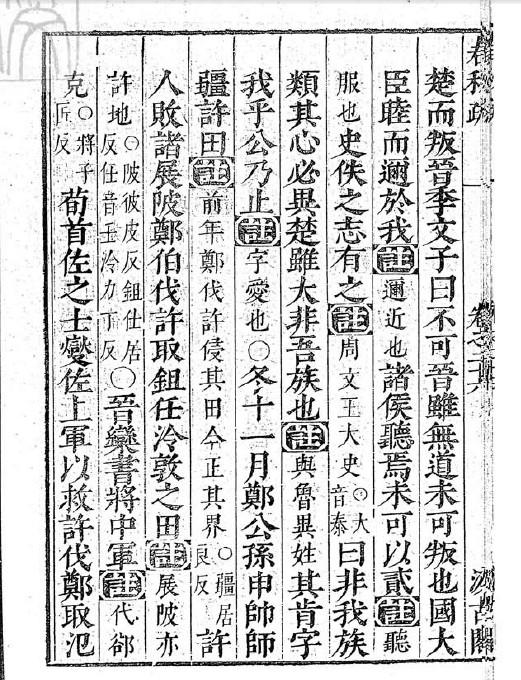 春秋疏 卷之二十六 汲古閣
楚而叛晉季文子曰不可晉雖無道未可叛也國大
臣睦而邇於我註邇近也諸侯聽焉未可以貳註聽
服也史佚之志有之註周文王大史○大音泰曰非我族
類其心必異楚雖大非吾族也註與魯異姓其肯字
我乎公乃止註字愛也○冬十一月鄭公孫申帥師
疆許田註前年鄭伐許侵其田今正其界○疆居良反許
人敗諸展陂鄭伯伐許取鉏任泠敦之田註展陂亦
許地○陂彼皮反鉏仕居反任音壬泠力丁反○晉欒書將中軍註代郤
克○將子匠反荀首佐之士燮佐上軍以救許伐鄭取氾